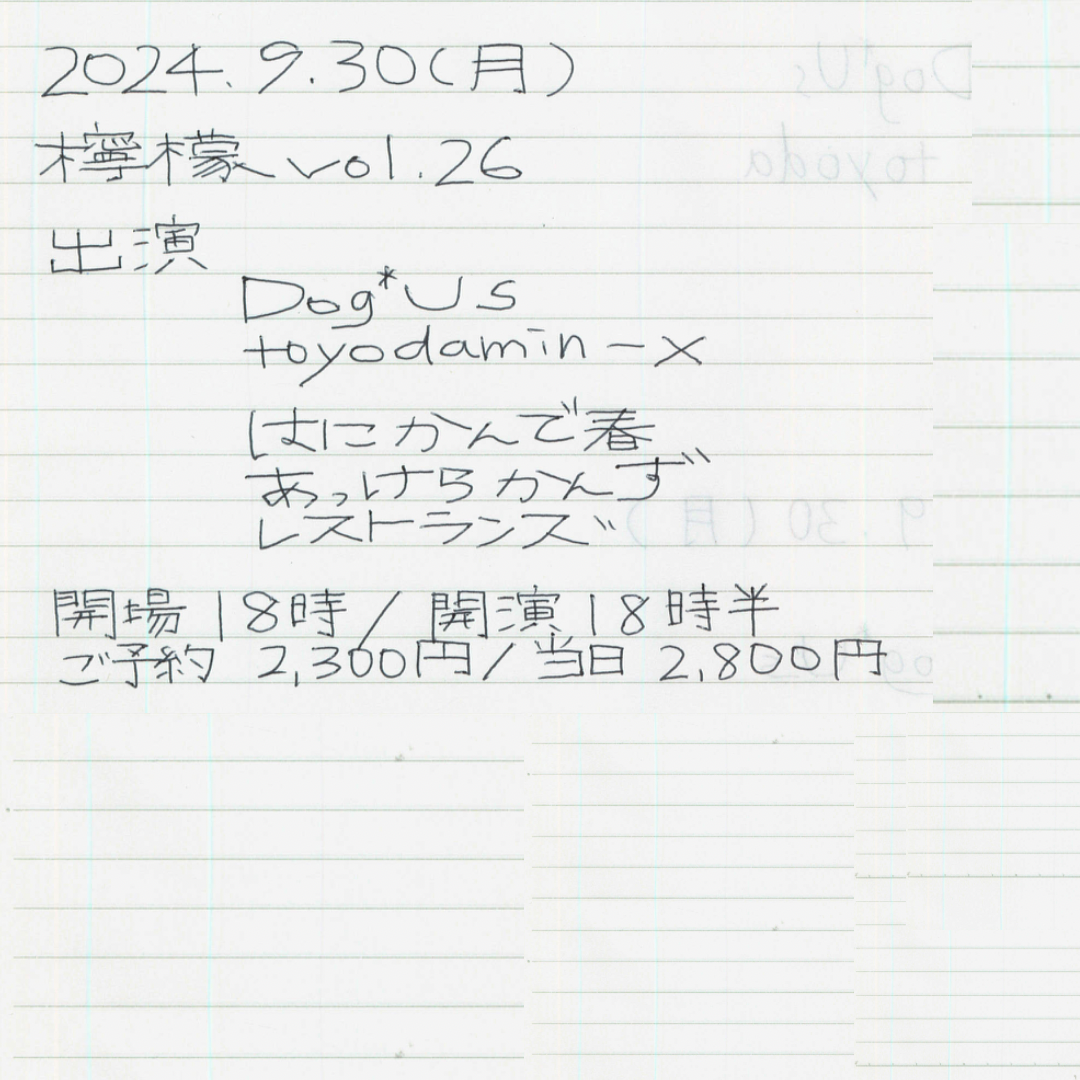 2024.9.30(月)
檸檬 vol.26
出演
Dog*Us
toyodamin-x
はにかんで春
あっけらかんず
レストランズ
開場18時/開演18時半
ご予約 2,300円/当日 2,800円